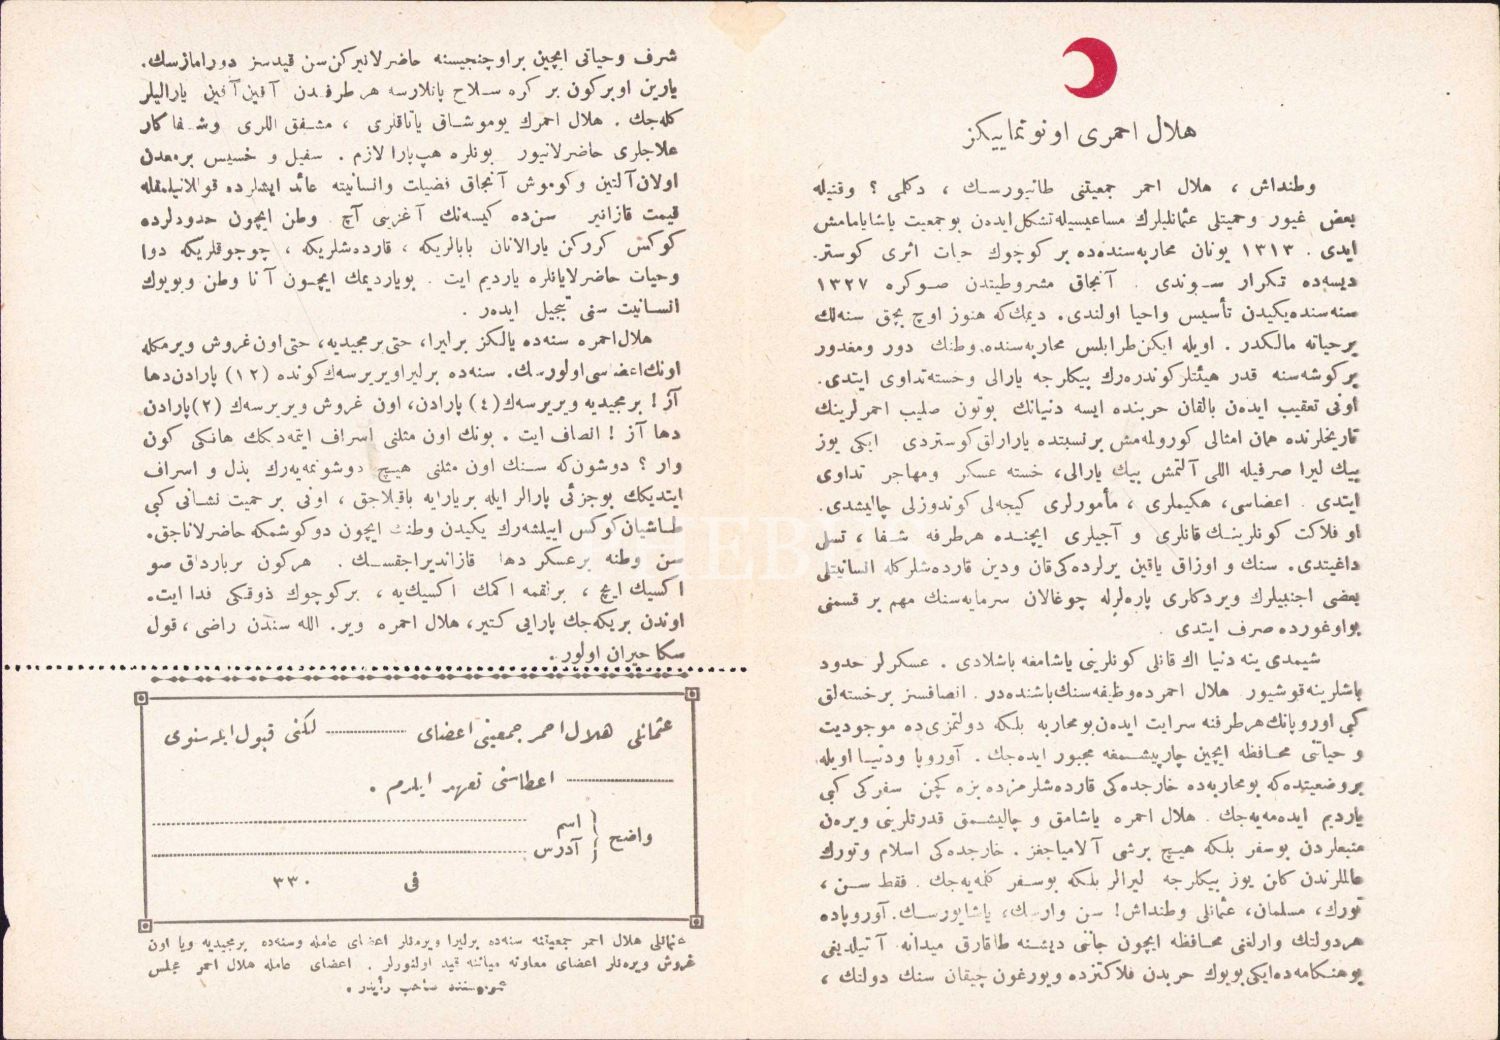 هلال احمری اونوتماییكز
وطنداش ، هلال احمر جمعیتنی طانیورسك ، دكلمی ؟ وقتیله
بعض غیور و حمیتلی عثمانلیلرك مساعیسیله تشكل ایدەن بو جمعیت یاشایامامش
ایدی . ١٣١٣ یونان محاربه‌سنده‌ده بر كوچوك حیات اثری كوستر.
دیسه‌ده تكرار سوندی . آنجاق مشروطیتدن صوكره ١٣٢٧
سنه‌سنده یكیدن تأسیس واحیا اولندی. دیمك كه هنوز اوچ بچق سنه‌لك
بر حیاته مالكدر . اویله ایكن طرابلس محاربه‌سنده، وطنك دور ومغدور
بر كوشه‌سنه قدر هیئتلر كوندره‌رك بیكلرجه یارالی وخسته تداوی ایتدی.
اونی تعقیب ایدەن بالقان حربنده ایسه دنیانك بوتون صلیب احمرلرینك
تاریخلرنده همان امثالی كورولمه‌مش بر نسبتده یارارلق كوستردی ایكی یوز
بیك لیرا صرفیله اللی آلتمش بیك یارالی، خسته عسكر ومهاجر تداوی
ایتدی . اعضاسی، هكیملری ، مأمورلری كیجه‌لی كوندوزلی چالیشدی.
او فلاكت كونلرینك قانلری و آجیلری ایچنده هر طرفه شفا ، تسلی
داغیتدی. سنك و اوزاق یاقین یرلرده‌كی قان ودین قارده‌شلركله انسانیتلی
بعضی اجنبیلرك ویردكلری پاره‌لرله چوغالان سرمایه‌سنك مهم بر قسمنی
بو اوغورده صرف ایتدی .
شیمدی ینه دنیا اك قانلی كونلرینی یاشامغه باشلادی . عسكرلر حدود
باشلرینه قوشیور هلال احمرده وظیفه‌سنك باشنده‌در . انصافسز بر خسته‌لق
كبی اوروپانك هر طرفنه سرایت ایدەن بو محاربه بلكه دولتمزی‌ده موجودیت
و حیاتنی محافظه ایچین چارپیشمغه مجبور ایده‌جك . آوروپا و دنیا اویله
بر وضعیتده كه بو محاربه‌ده خارجده‌كی قارده‌شلرمزده بزه كچن سفركی كبی
یاردیم ایده‌مه‌یه‌جك . هلال احمره یاشامق و چالیشمق قدرتلرینی ویره‌ن
منبعلردن بو سفر بلكه هیچ بر شی آلامیاجغز . خارجده‌كی اسلام وتورك
عاللرندن كلن یوز بیكلرجه لیرالر بلكه بو سفر كلمه‌یه‌جك . فقط سن ،
تورك، مسلمان، عثمانلی وطنداش! سن وارسك، یاشایورسك. آوروپاده
هر دولتك وارلغنی محافظه ایچون جاننی دیشنه طاقارق میدانه آتیلدیغی
بو هنكامه‌ده ایكی بویوك حربدن فلاكتزده ویورغون چیقان سنك دولتك ،
شرف وحیاتی ایچین بر اوچنجیسنه حاضرلانیركن سن قیدسز دورامازسك.
یارین اوبركون بر كره سلاح پاتلارسه هر طرفدن آقین آقین یارالیلر
كله‌جك . هلال احمرك یوموشاق یاتاقلری ، مشفق اللری وشفاكار
علاجلری حاضرلانیور بونلره هپ پارا لازم . سفیل و خسیس بر معدن
اولان آلتین وكوموش آنجاق فضیلت وانسانیته عائد ایشلرده قوللانیلمقله
قیمت قازانیر سن‌ده كیسه‌نك آغزینی آچ . وطن ایچون حدودلرده
كوكس كرركن یارالانان بابالریكه ، قارده‌شلریكه ، چوجوقلریكه دوا
وحیات حاضرلایانلره یاردیم ایت . بو یاردیمك ایچون آنا وطن وبویوك
انسانیت سنی تبجیل ایده‌ر .
هلال احمره سنه‌ده یالكز بر لیرا، حتی بر مجیدیه، حتی اون غروش ویرمكله
اونك اعضاسی اولورسك. سنه‌ده بر لیرا ویریرسه‌ك كونده (١٢) پارادن دها
آز ! بر مجیدیه ویریرسه‌ك (٤) پارادن، اون غروش ویریرسه‌ك (٢) پارادن
دها آز ! انصاف ایت . بونك اون مثلنی اسراف ایتمه‌دیكك هانكی كون
وار ؟ دوشون كه سنك اون مثلنی هیچ دوشونمه‌یه‌رك بذل و اسراف
ایتدیكك بو جزئی پارالر ایله بر یارایه باقیلاجق ، اونی بر حمیت نشانی كبی
طاشیان كوكس اییلشه‌رك یكیدن وطنك ایچون دوكوشمكه حاضرلاناجق.
سن وطنه بر عسكر دها قازاندیراجقسك . هركون بر بارداق صو
اكسیك ایچ ، بر لقمه اكمك اكسیك یه ، بر كوچوك ذوقكی فدا ایت.
اوندن بریكه‌جك پارایی كتیر، هلال احمره ویر. الله سندن راضی ، قول
سكا حیران اولور .
عثمانلی هلال احمر جمعیتی اعضای ........ لكنی قبول ایله سنوی
........ اعطاسنی تعهد ایلرم .
واضح
اسم
آدرس
فی ٣٣٠
عثمانلی هلال احمر جمعیتنه سنه‌ده بر لیرا ویره‌نلر اعضای عامله وسنه‌ده بر مجیدیه ویا اون
غروش ویره‌نلر اعضای معاونه میاننه قید اولنورلر . اعضای عامله هلال احمر مجلس
عمومیسنده صاحب رأیدر .